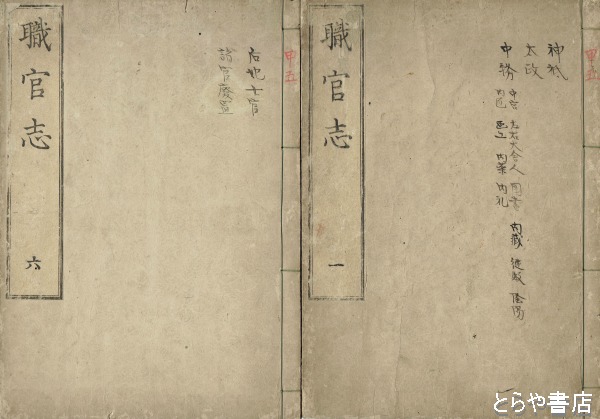 職官志
一
神祇
太政
中務
中宮 左右大舎人 図書 内蔵 縫殿 陰陽
内匠
内薬 内礼
職官志
六
右九士官
諸官廢置
甲五
甲五
とらや書店